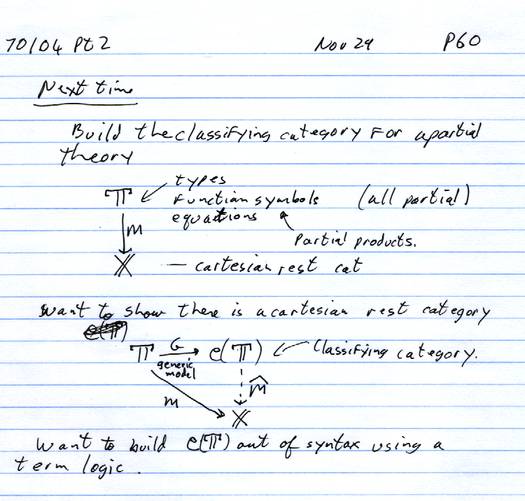 70/04 Pt 2 Nov 29 P60
Next time
Build the classifying category for a partial
theory
𝕋 ← types
function symbols (all partial)
equations
m Partial products.
𝕏 — cartesian rest cat
Want to show there is a cartesian rest category
𝕋 G→ C(𝕋) ← Classifying category.
generic
model
m m̂
𝕏
Want to build C(𝕋) out of syntax using a
term logic.